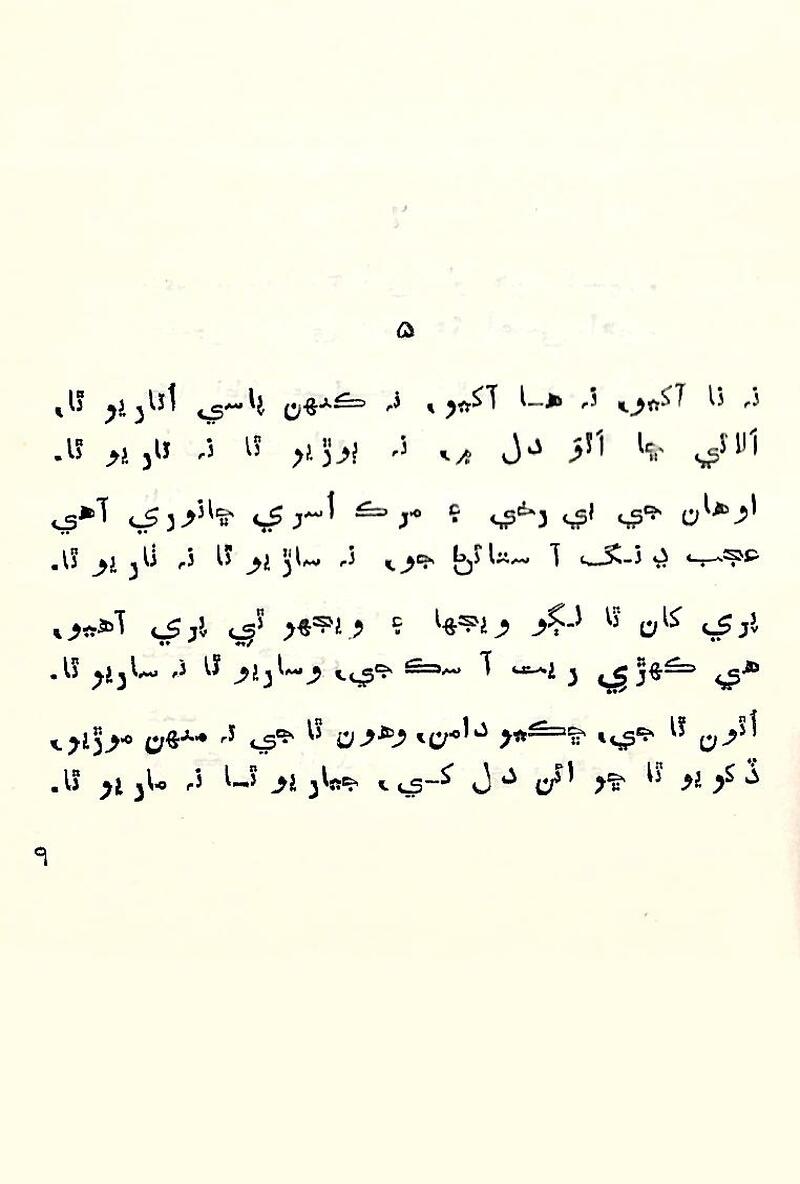 ۵
نہ نا آکيو، نہ هــا آکيو، نہ ڪنهن پاسي اُتاريو ٿا،
اَلائي ڇا اَٿوَ دل ۾، نہ ٻوڙيو ٿا نہ تاريو ٿا.
اوهان جي بي رخي ۽ مرڪ اُسري چانوري آهي
عجب ڍنگ آ ستائڻ جو، نہ ساڙيو ٿا نہ ٺاريو ٿا.
پري کان ٿا لڳو ويجها ۽ ويجهو ٿي پري آهيو،
هي ڪهڙي ريت آ سڪ جي، وساريو ٿا نہ ساريو ٿا.
اُٿون ٿا جي، ڇڪيو دامن، وهون ٿا جي تہ منهن موڙيو،
ڏکويو ٿا ڇو ائن دل کــي، جيئاريو ٿــا نہ ماريو ٿا.
۹